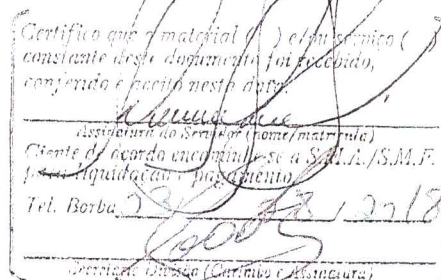 Certifico que o material ( ) e/ou serviço (
constante deste documento foi recebido,
conferido e aceito nesta data.
Assinatura do Servidor (nome/matrícula)
Ciente de acordo encaminhe-se a S.M.A./S.M.F.
para liquidação e pagamento.
Tel. Borba
Divisão (Carimbo e Assinatura)